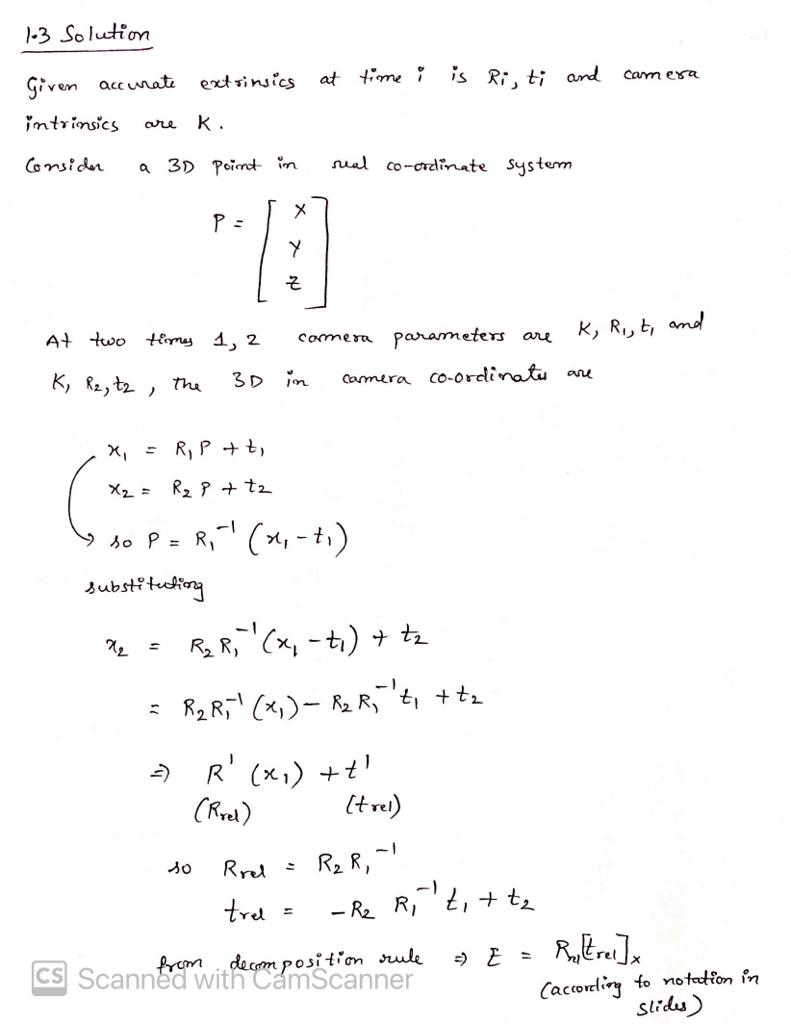 1.3 Solution
Given accurate extrinsics at time i is Ri, ti and camera
intrinsics are K.
Consider a 3D point in real co-ordinate system
P = [ X
Y
Z ]
At two times 1, 2 camera parameters are K, R₁, t₁ and
K, R₂, t₂, the 3D in camera co-ordinates are
x₁ = R₁P + t₁
x₂ = R₂P + t₂
so P = R₁⁻¹ (x₁ - t₁)
substituting
x₂ = R₂R₁⁻¹(x₁ - t₁) + t₂
= R₂R₁⁻¹ (x₁) - R₂R₁⁻¹t₁ + t₂
⇒ R' (x₁) + t'
(Rrel) (trel)
so Rrel = R₂R₁⁻¹
trel = -R₂ R₁⁻¹ t₁ + t₂
from decomposition rule ⇒ E = Rrel[trel]ₓ
(according to notation in
slides)
CS Scanned with CamScanner